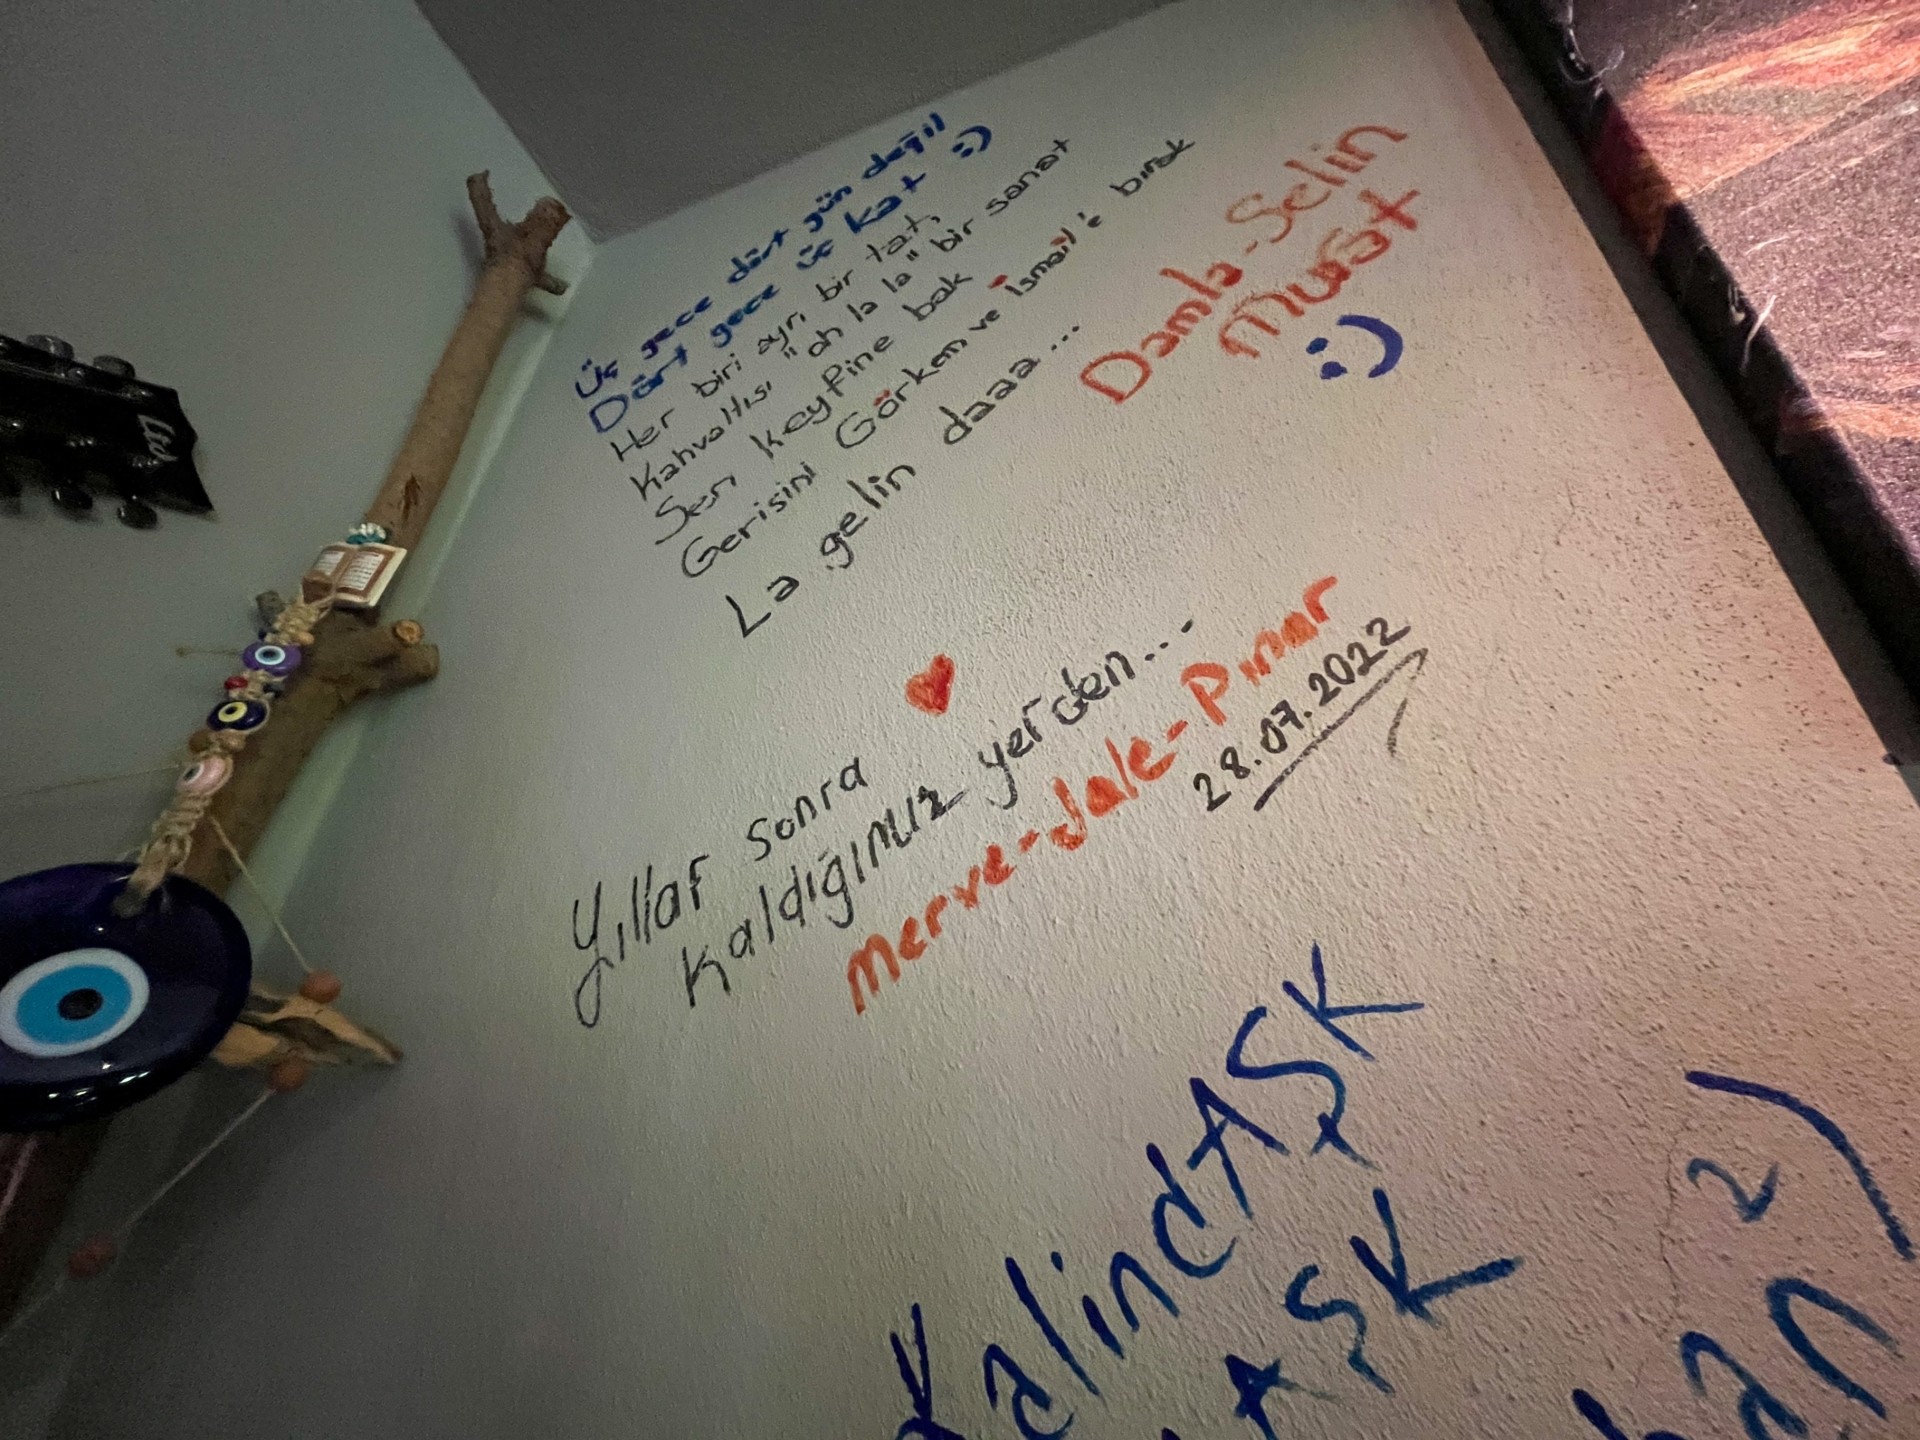 Üç gece dört gün değil
Dört gece üç kat :)
Her biri ayrı bir tat,
Kahvaltısı "oh la la" bir sanat
Sen keyfine bak
Gerisini Görkem ve İsmail'e bırak
La gelin daaa...
Damla-Selin
Murat
:)
Yıllar sonra
Kaldığımız yerden...
Merve-Jale-Pınar
28.07.2022
KalindAŞK
AŞK
Ltd